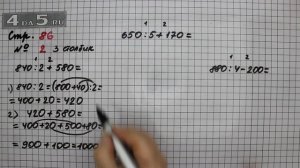 4DA5.RU
Стр. 86
№ 2 3 столбик
1 2
840 : 2 + 580 =
1) 840 : 2 = (800+40) : 2 =
= 400 + 20 = 420
2) 420 + 580 =
= 400 + 20 + 500 + 80 =
= 900 + 100 = 1000
1 2
650 : 5 + 170 =
1 2
880 : 4 - 200 =